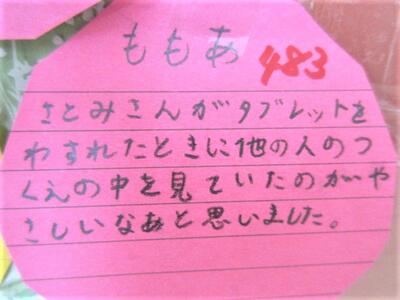 ももあ 483
さとみさんがタブレットを
わすれたときに他の人のつ
くえの中を見ていたのがや
さしいなあと思いました。